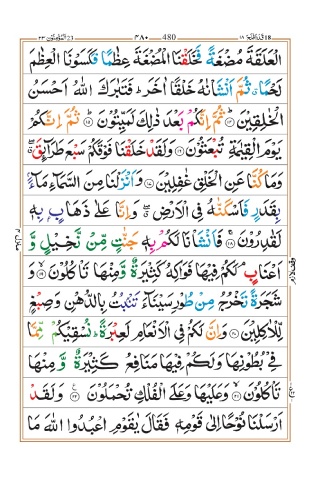 قد افلح ١٨ ٤٨٠ 480 المؤمنون ٢٣
الْعَلَقَةَ مُضْغَةً فَخَلَقْنَا الْمُضْغَةَ عِظٰمًا فَكَسَوْنَا الْعِظٰمَ
لَحْمًا ۗ ثُمَّ اَنْشَاْنٰهُ خَلْقًا اٰخَرَ ؕ فَتَبٰرَكَ اللّٰهُ اَحْسَنُ
الْخٰلِقِيْنَ ۞ ثُمَّ اِنَّكُمْ بَعْدَ ذٰلِكَ لَمَيِّتُوْنَ ۞ ثُمَّ اِنَّكُمْ
يَوْمَ الْقِيٰمَةِ تُبْعَثُوْنَ ۞ وَلَقَدْ خَلَقْنَا فَوْقَكُمْ سَبْعَ طَرَآئِقَ ۖ
وَمَا كُنَّا عَنِ الْخَلْقِ غٰفِلِيْنَ ۞ وَاَنْزَلْنَا مِنَ السَّمَآءِ مَآءًۢ
بِقَدَرٍ فَاَسْكَنّٰهُ فِى الْاَرْضِ ۖ وَاِنَّا عَلٰى ذَهَابٍۢ بِهٖ
لَقٰدِرُوْنَ ۞ فَاَنْشَاْنَا لَكُمْ بِهٖ جَنّٰتٍ مِّنْ نَّخِيْلٍ وَّ
اَعْنَابٍ ۘ لَكُمْ فِيْهَا فَوَاكِهُ كَثِيْرَةٌ وَّمِنْهَا تَاْكُلُوْنَ ۞ وَ
شَجَرَةً تَخْرُجُ مِنْ طُوْرِ سَيْنَآءَ تَنْۢبُتُ بِالدُّهْنِ وَصِبْغٍ
لِّلْاٰكِلِيْنَ ۞ وَاِنَّ لَكُمْ فِى الْاَنْعَامِ لَعِبْرَةً ؕ نُسْقِيْكُمْ مِّمَّا
فِىْ بُطُوْنِهَا وَلَكُمْ فِيْهَا مَنَافِعُ كَثِيْرَةٌ وَّمِنْهَا
تَاْكُلُوْنَ ۞ وَعَلَيْهَا وَعَلَى الْفُلْكِ تُحْمَلُوْنَ ۞ وَلَقَدْ
اَرْسَلْنَا نُوْحًا اِلٰى قَوْمِهٖ فَقَالَ يٰقَوْمِ اعْبُدُوا اللّٰهَ مَا